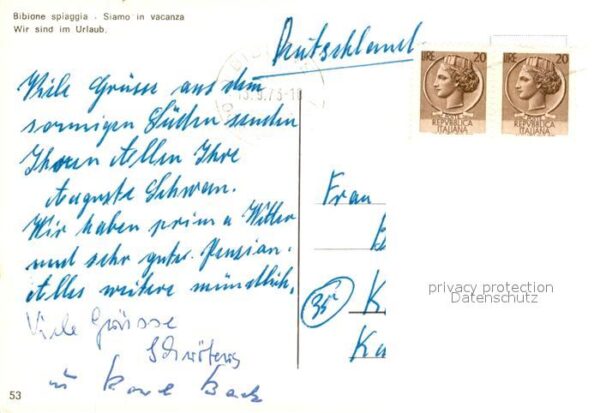 Bibione spiaggia - Siamo in vacanza
Wir sind im Urlaub.
Deutschland
LIRE 20
REPUBBLICA
ITALIANA
LIRE 20
REPUBBLICA
ITALIANA
Viele Grüsse aus dem
sonnigen Süden senden
Ihnen Allen Ihre
Auguste Schwan.
Wir haben prima Wetter
und sehr gute Pension.
Alles weitere mündlich.
Viele Grüsse
Schröters
u Karl Back
Frau
35
K
Ka
privacy protection
Datenschutz
53